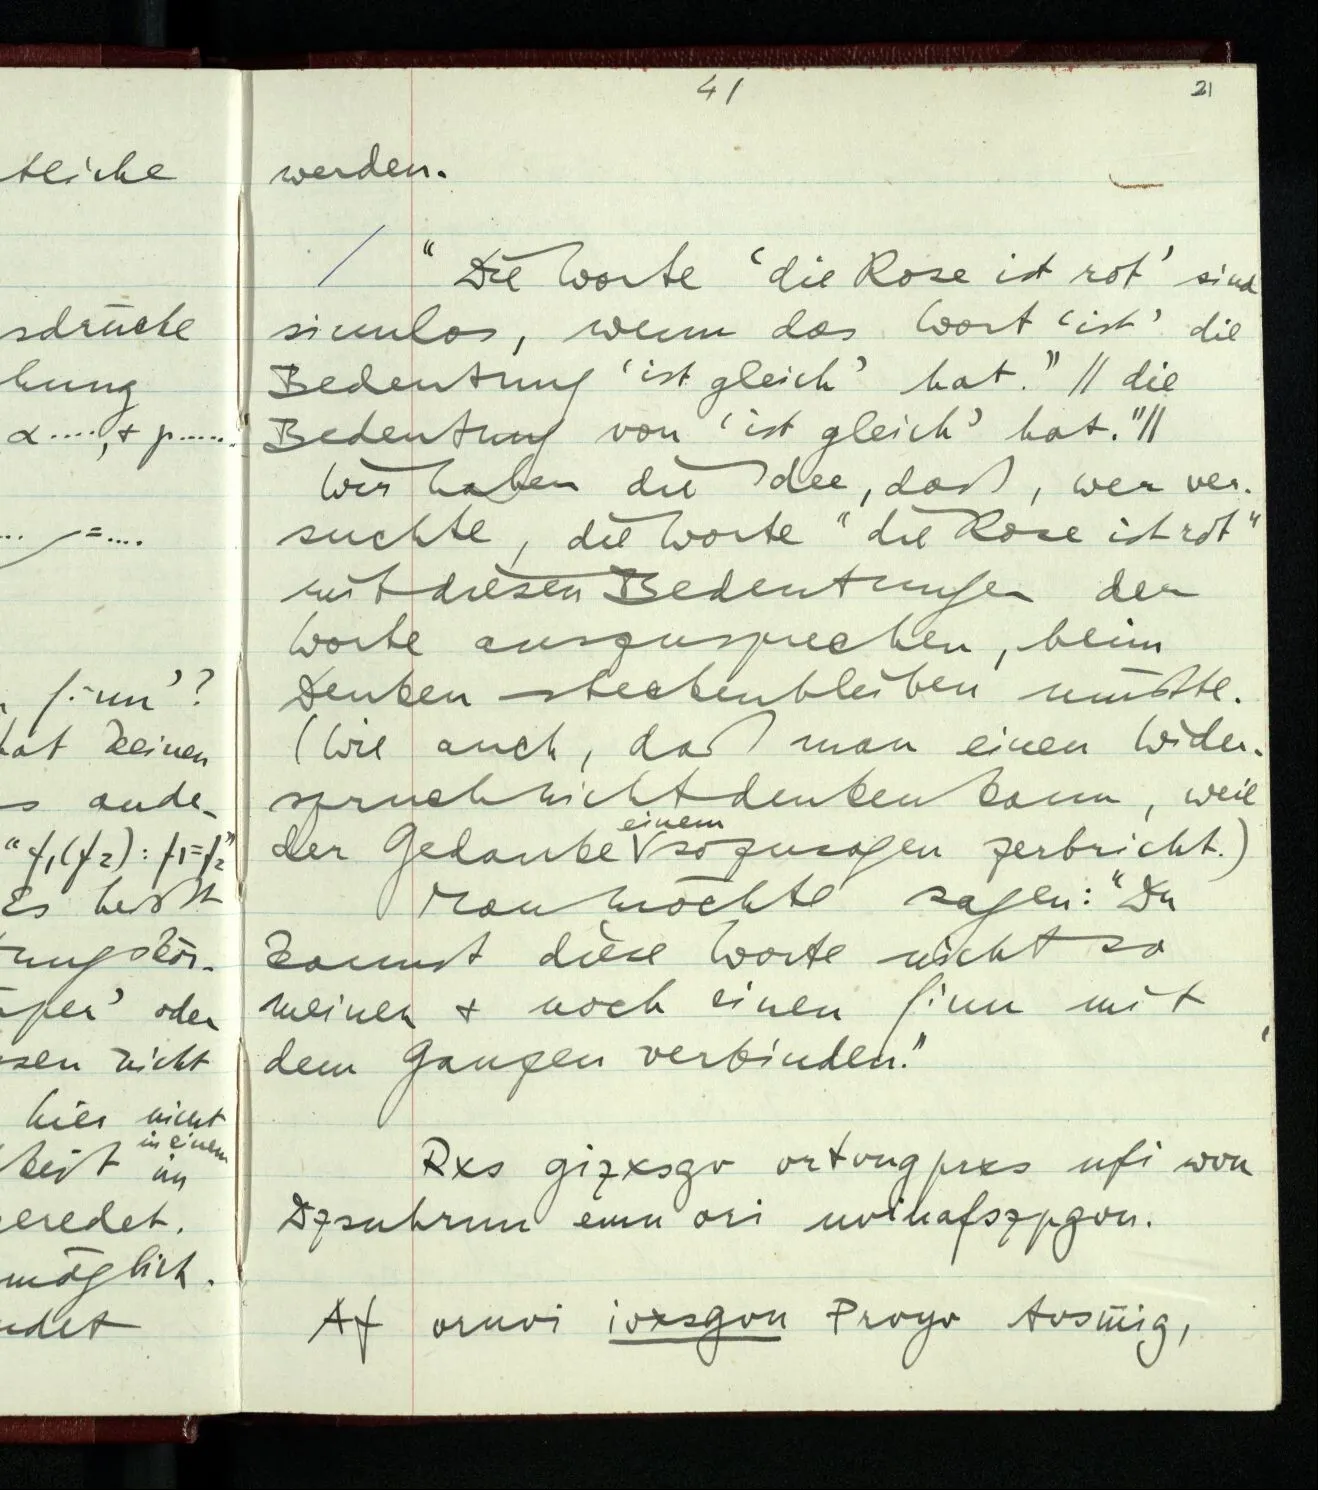 tliche
sdrücke
hung
α ....., + p .....
... =....
Sinn'?
hat keinen
s ande-
"f₁(f₂) : f₁=f₂"
Es heißt
tungskör-
per' oder
sen nicht
hier nicht
in einem
keit im
eredet.
möglich.
ndet
41
21
werden.
/ "Die Worte 'die Rose ist rot' sind
sinnlos, wenn das Wort 'ist' die
Bedeutung 'ist gleich' hat." // die
Bedeutung von 'ist gleich' hat."//
Wir haben die Idee, daß, wer ver-
suchte, die Worte "die Rose ist rot"
mit diesen Bedeutungen der
Worte auszusprechen, beim
Denken steckenbleiben müßte.
(Wie auch, daß man einen Wider-
spruch nicht denken kann, weil
einem
der Gedanke sozusagen zerbricht.)
Man möchte sagen: "Du
kannst diese Worte nicht so
meinen + noch einen Sinn mit
dem Ganzen verbinden."
Rxs gizxsgv nfi wvn
ori
Af